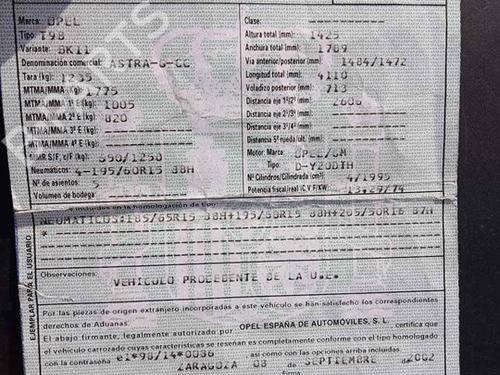 Marca: OPEL
Tipo: T98
Variante: BK11
Denominación comercial: ASTRA-G-CC
Tara (kg): 1235
MTMA/MMA (kg): 1775
MTMA/MMA 1º E (kg): 1005
MTMA/MMA 2º E (kg): 820
MTMA/MMA 3º E (kg):
MTMA/MMA 4º E (kg):
MMR S/F, c/F (kg): 590/1250
Neumáticos: 4-195/60R15 88H
Nº de asientos: 5
Volumen de bodega:
Clase:
Altura total (mm): 1425
Anchura total (mm): 1709
Vía anterior/posterior (mm): 1484/1472
Longitud total (mm): 4110
Voladizo posterior (mm): 713
Distancia eje 1º/2º (mm): 2606
Distancia eje 2º/3º (mm):
Distancia eje 3º/4º (mm):
Distancia 5ª rueda/últ. (mm):
Motor: Marca: OPEL/GM
Tipo: D-Y20DTH
Nº Cilindros/Cilindrada (cm³): 4/1995
Potencia fiscal/real (C.V.F/KW): 13.29/74
NEUMATICOS:185/65R15 88H+195/50R15 88H+205/50R16 87H
EJEMPLAR PARA EL USUARIO
Observaciones:
VEHICULO PROCEDENTE DE LA U.E.
Por las piezas de origen extranjero incorporadas a este vehículo se han satisfecho los correspondientes
derechos de Aduanas.
El abajo firmante, legalmente autorizado por OPEL ESPAÑA DE AUTOMÓVILES, S. L., certifica que
el vehículo carrozado cuyas características se reseñan es completamente conforme con el tipo homologado
con la contraseña e1*98/14*0086 así como con las opciones arriba incluidas.
ZARAGOZA 03 de SEPTIEMBRE de 2002
Firma